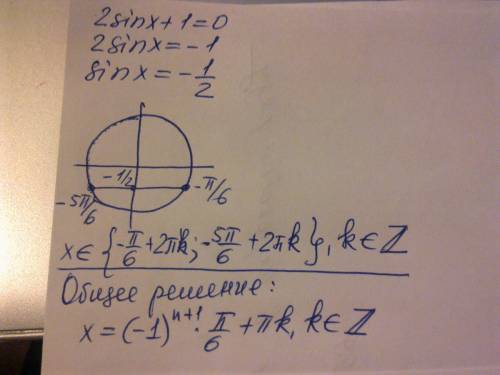 2sinx+1=0
2sinx=-1
sinx=-1/2
-1/2
-π/6
-5π/6
x∈{-π/6+2πk; -5π/6+2πk}, k∈ℤ
Общее решение:
x=(-1)^(n+1)·π/6+πk, k∈ℤ